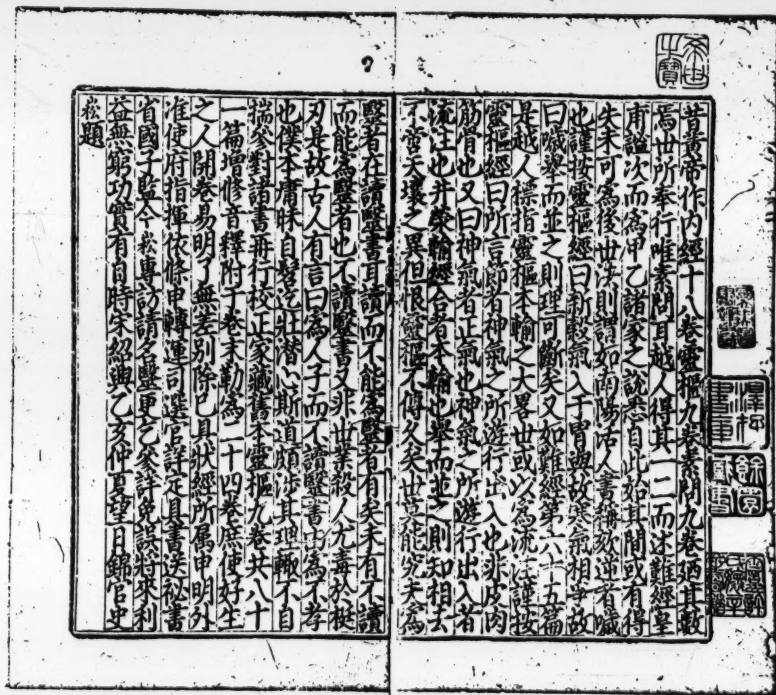 昔黃帝作內經十八卷靈樞九卷素問九卷廼其數
焉世所奉行唯素問耳越人得其一二而述難經皇
甫謐次而為甲乙諸家之說悉自此始其間或有得
失未可為後世法則謂如南陽活人書稱欬逆者噦
也謹按靈樞經曰新穀氣入于胃與故寒氣相爭故
曰噦舉而並之則理可斷矣又如難經第六十五篇
是越人標指靈樞本輸之大畧世或以為流注謹按
靈樞經曰所言節者神氣之所遊行出入也非皮肉
筋骨也又曰神氣者正氣也神氣之所遊行出入者
流注也井滎輸經合者本輸也舉而並之則知相去
不啻天壤之異但恨靈樞不傳久矣世莫能究夫為
毉者在讀毉書耳讀而不能為毉者有矣未有不讀
而能為毉者也不讀毉書又非世業殺人尤毒於梃
刃是故古人有言曰為人子而不讀毉書由為不孝
也僕本庸昧自髫迄壯潜心斯道頗涉其理輙不自
揣參對諸書再行校正家藏舊本靈樞九卷共八十
一篇增修音釋附于卷末勒為二十四卷庶使好生
之人開卷易明了無差別除已具狀經所属申明外
准使府指揮依條申轉運司選官詳定具書送祕書
省國子監今崧專訪請名毉更乞參詳免誤將來利
益無窮功實有自時宋紹興乙亥仲夏望日錦官史
崧題